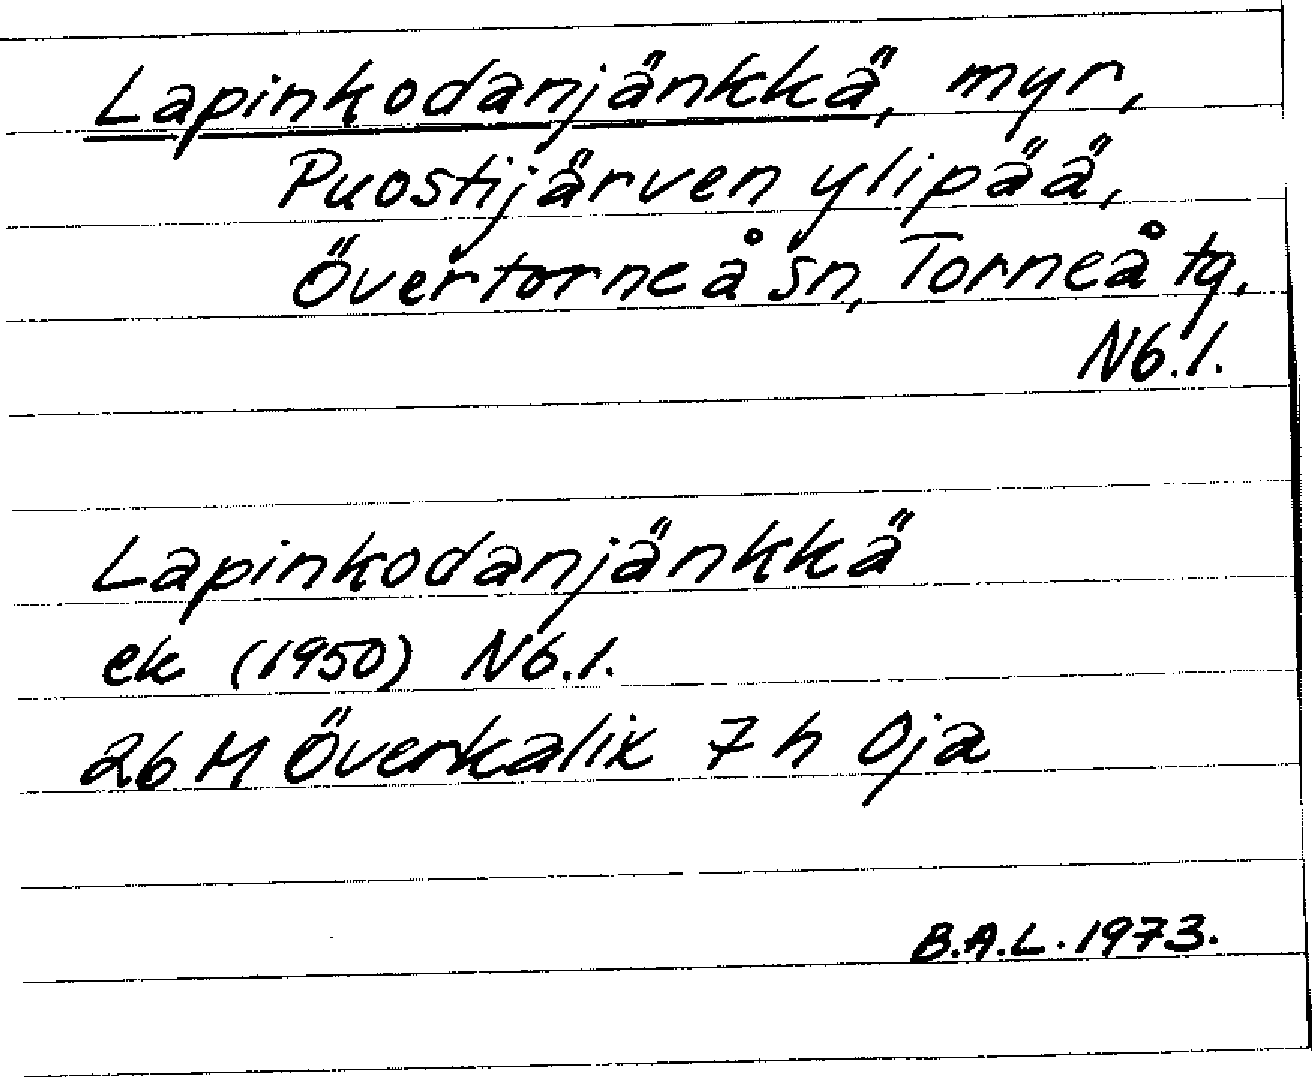 Lapinkodanjänkkä, myr,
Puostijärven ylipää,
Övertorneå sn, Torneå tg.
Nb.l.
Lapinkodanjänkkä
ek (1950) Nb.l.
26 M Överkalix 7 h Oja
B.A.L. 1973.